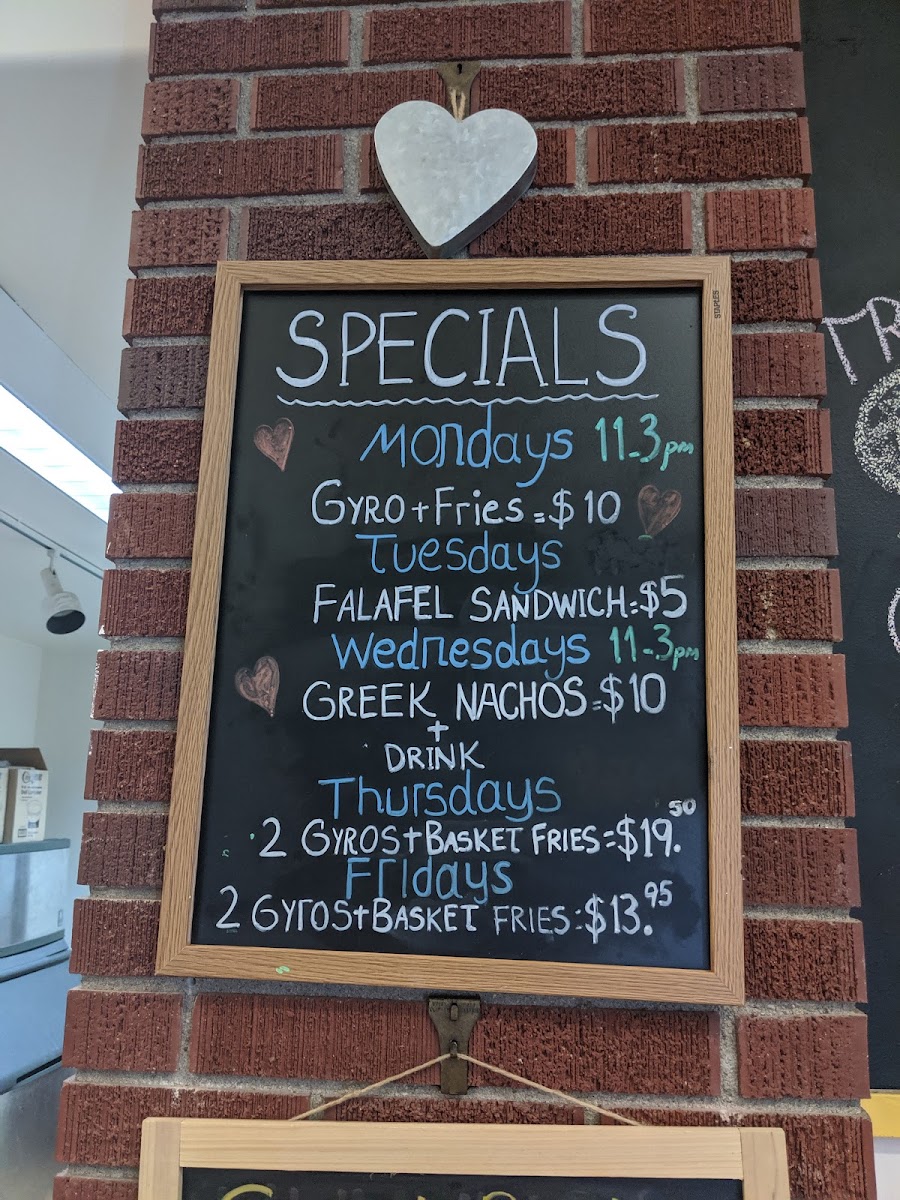 STAPLES
SPECIALS
Mondays 11-3pm
GYRO+Fries=$10
Tuesdays
FALAFEL SANDWICH=$5
Wednesdays 11-3pm
GREEK NACHOS=$10
+
DRINK
Thursdays
2 GYROS+BASKET FRIES=$19.50
Fridays
2 Gyros+BASKET FRIES=$13.95
TR